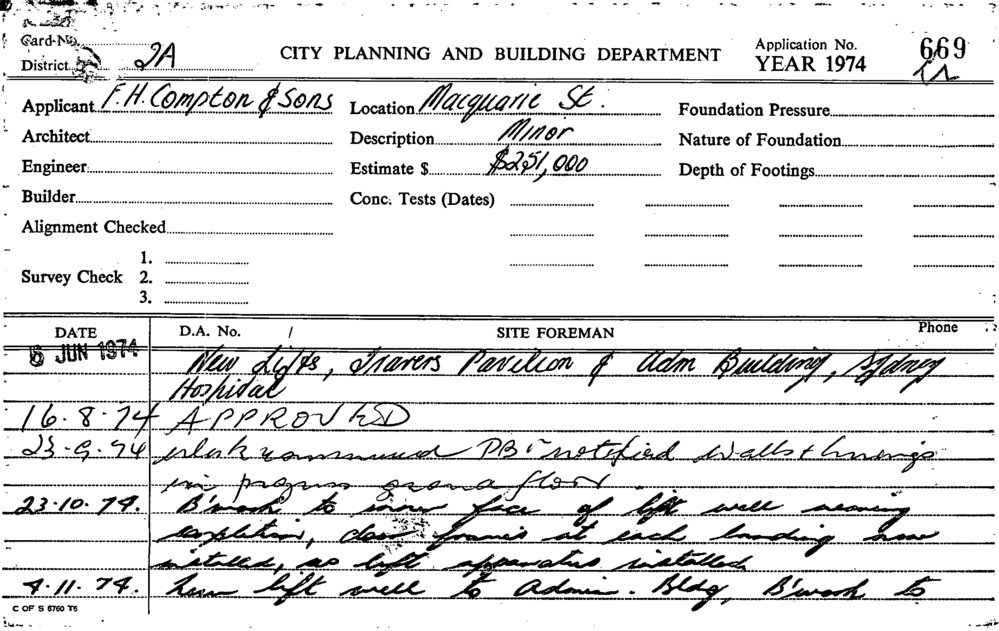 Card No.
District 2A
CITY PLANNING AND BUILDING DEPARTMENT
Application No. 669
YEAR 1974
Applicant F.H. Compton & Sons
Location Macquarie St.
Foundation Pressure
Architect
Description Minor
Nature of Foundation
Engineer
Estimate $ $251,000
Depth of Footings
Builder
Conc. Tests (Dates)
Alignment Checked
Survey Check 1.
2.
3.
DATE D.A. No. / SITE FOREMAN Phone
6 JUN 1974 New Lifts, Travers Pavilion & Adm Building, Sydney
Hospital
16.8.74 APPROVED
23.9.74 Work commenced PBI notified Walls &
in progress ground floor.
23.10.74. B'work to inner face of lift well nearing
completion, door frames at each landing now
installed, no lift apparatus installed
4.11.74. New lift well to Admin. Bldg, B'work to
C OF S 6760 T6